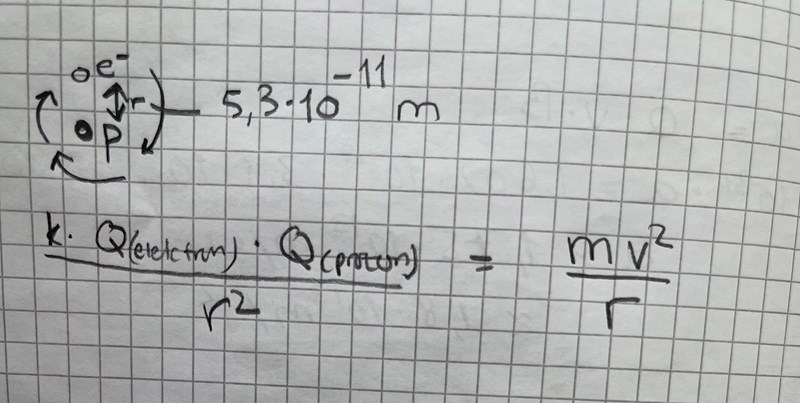 e⁻
r — 5,3·10⁻¹¹ m
p
k · Q(elelctron) · Q(proton) / r² = mv² / r